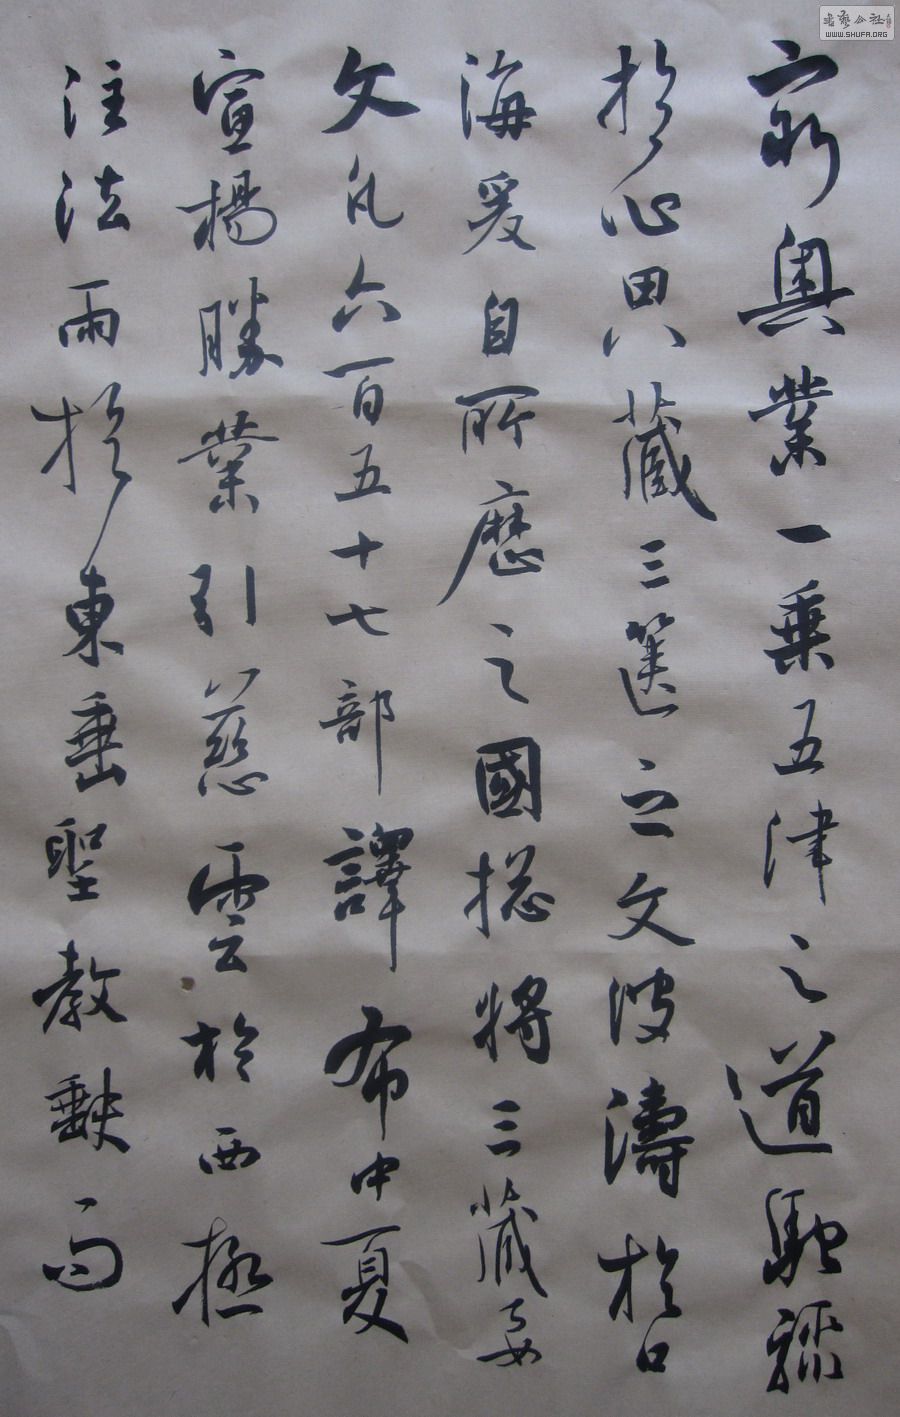 窮奧業一乘五律之道馳驟
於心田八藏三篋之文波濤於口
海爰自所歷之國揔將三藏要
文凡六百五十七部譯布中夏
宣揚勝業引慈雲於西極
注法雨於東垂聖教缺而
書藝公社
WWW.SHUFA.ORG